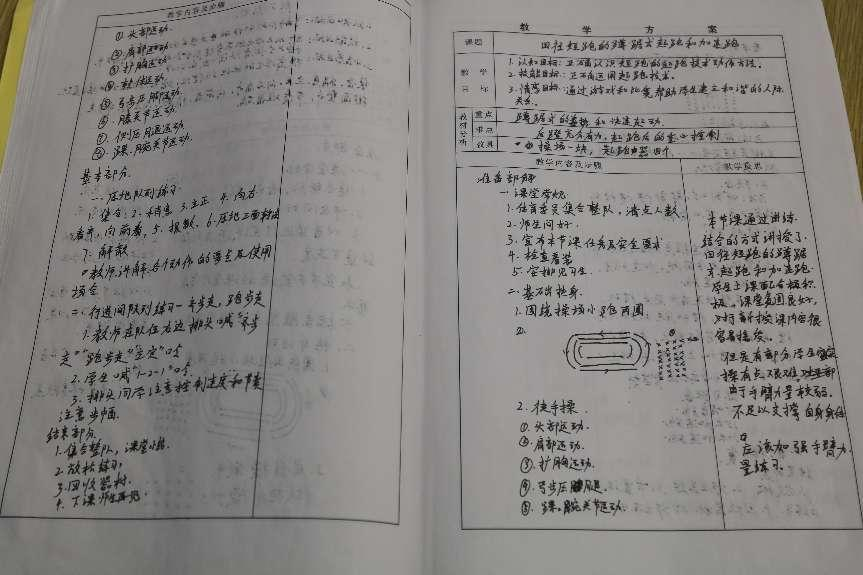 教学内容及步骤
① 头部运动.
② 肩部运动.
③ 扩胸运动.
④ 体运动.
⑤ 弓步压腿运动.
⑥ 膝关节运动.
⑦ 侧压腿运动.
⑧ 踝.腕关节运动.
基本部分.
一、原地队列练习.
1. 集合. 2. 稍息 3. 立正 4. 向右
看齐, 向前看, 5. 报数. 6. 原地三面转法
7. 解散
教师讲解各个动作的要点及使用
场合
二、行进间队列练习—齐步走, 跑步走
1. 教师在队伍右边 排头喊"齐步
走""跑步走""立定"口令
2. 学生喊"1-2-1"口令.
3. 排头同学注意控制速度和节奏
注意步幅.
结束部分.
1. 集合整队, 课堂小结.
2. 放松练习.
3. 回收器材.
4. 下课 师生再见.
教 学 方 案
课题
田径短跑的蹲踞式起跑和加速跑
教 学 目 标
1. 认知目标: 正确认识短跑的起跑技术动作方法.
2. 技能目标: 正确运用起跑技术.
3. 情感目标: 通过游戏和比赛帮助学生建立和谐的人际
关系.
教材分析
重点
蹲踞式的姿势和快速起动.
难点
后蹬充分有力, 起跑后的重心控制
教具
操场一块, 起跑器四个.
教学内容及步骤
教学反思
准备部分
一. 课堂常规.
1. 体育委员集合整队, 清点人数.
2. 师生问好.
3. 宣布本节课任务及安全要求
4. 检查着装
5. 安排见习生.
二. 基础热身.
1. 围绕操场小跑两圈
2. 徒手操.
①. 头部运动.
②. 肩部运动.
③. 扩胸运动.
④. 弓步压腿.
⑤. 踝.腕关节运动.
本节课通过讲练
结合的方式讲授了.
田径短跑的蹲踞
式起跑和加速跑
学生上课配合极积
极. 课堂氛围良好,
对于所授课内容很
容易接受.
但是有部分学生
操有点不到位
由于手臂力量较弱.
不足以支撑自身身体
应该加强手臂力
量练习.